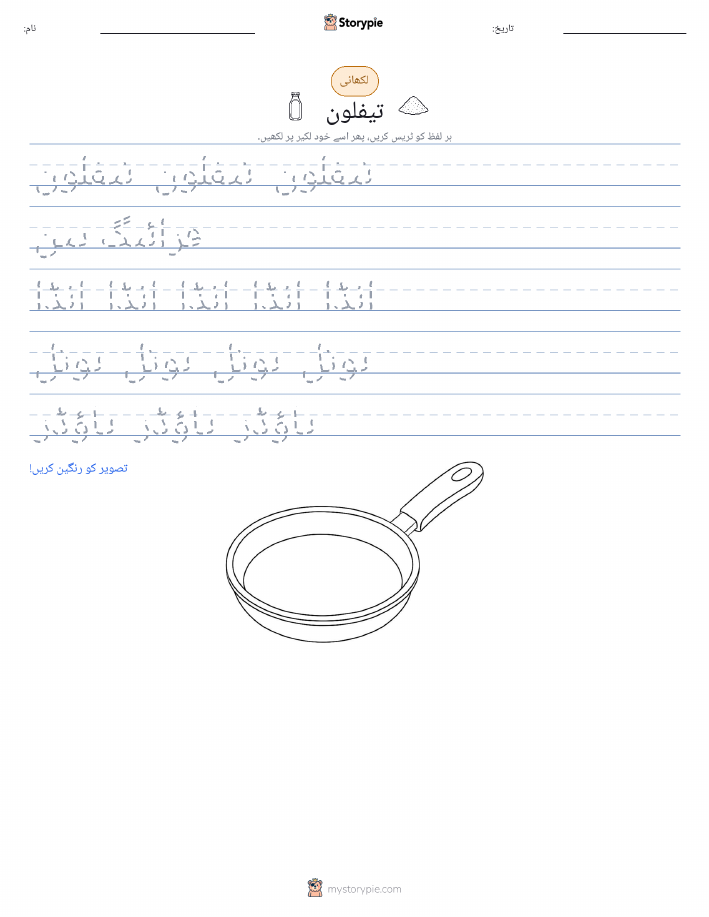 نام: Storypie تاریخ:
لکھائی
تیفلون
ہر لفظ کو ٹریس کریں، پھر اسے خود لکیر پر لکھیں۔
تیفلون تیفلون تیفلون
فرائنگ پین
انڈا انڈا انڈا انڈا انڈا
بوتل بوتل بوتل بوتل
پاؤڈر پاؤڈر پاؤڈر
تصویر کو رنگین کریں!
mystorypie.com